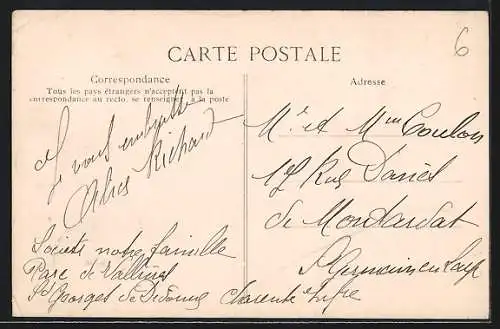 6
CARTE POSTALE
Correspondance
Tous les pays étrangers n'acceptent pas la
correspondance au recto, se renseigner à la poste
Adresse
Je vous embrasse
Richard
Mr et Mme Coulon
17 Rue
de
St Germain en Laye
notre famille
Parc de Vallières
St Georges de Didonne Charente Infre